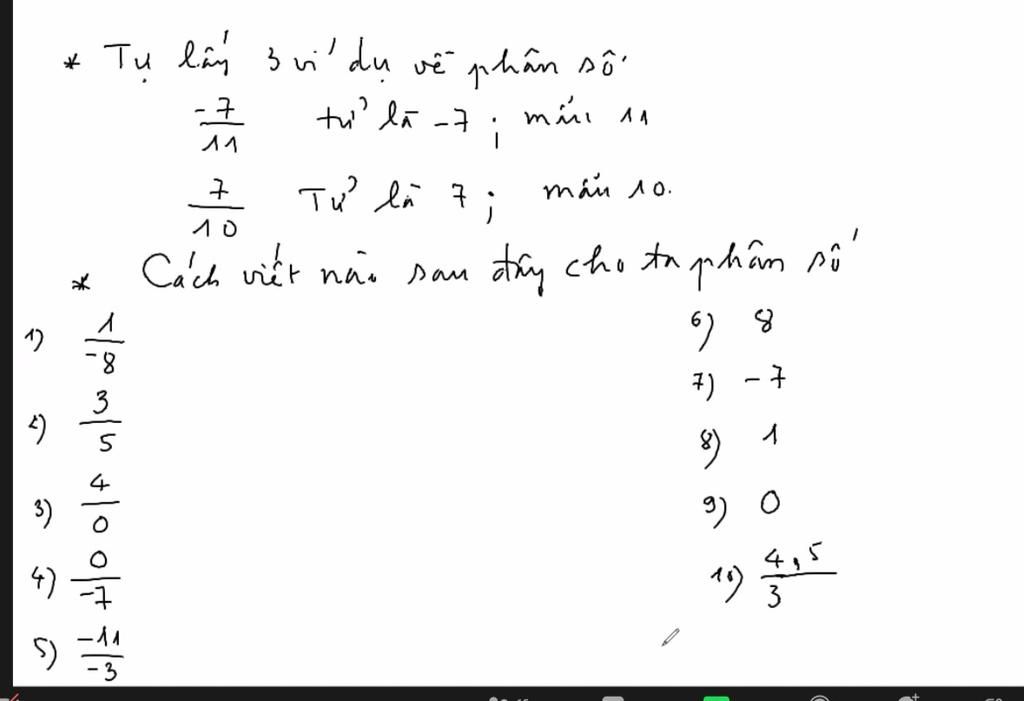 * Tự lấy 3 ví dụ về phân số
-7/11 tử là -7 ; mẫu 11
7/10 Tử là 7 ; mẫu 10.
* Cách viết nào sau đây cho ta phân số
1) 1/-8
2) 3/5
3) 4/0
4) 0/-7
5) -11/-3
6) 8
7) -7
8) 1
9) 0
10) 4,5/3